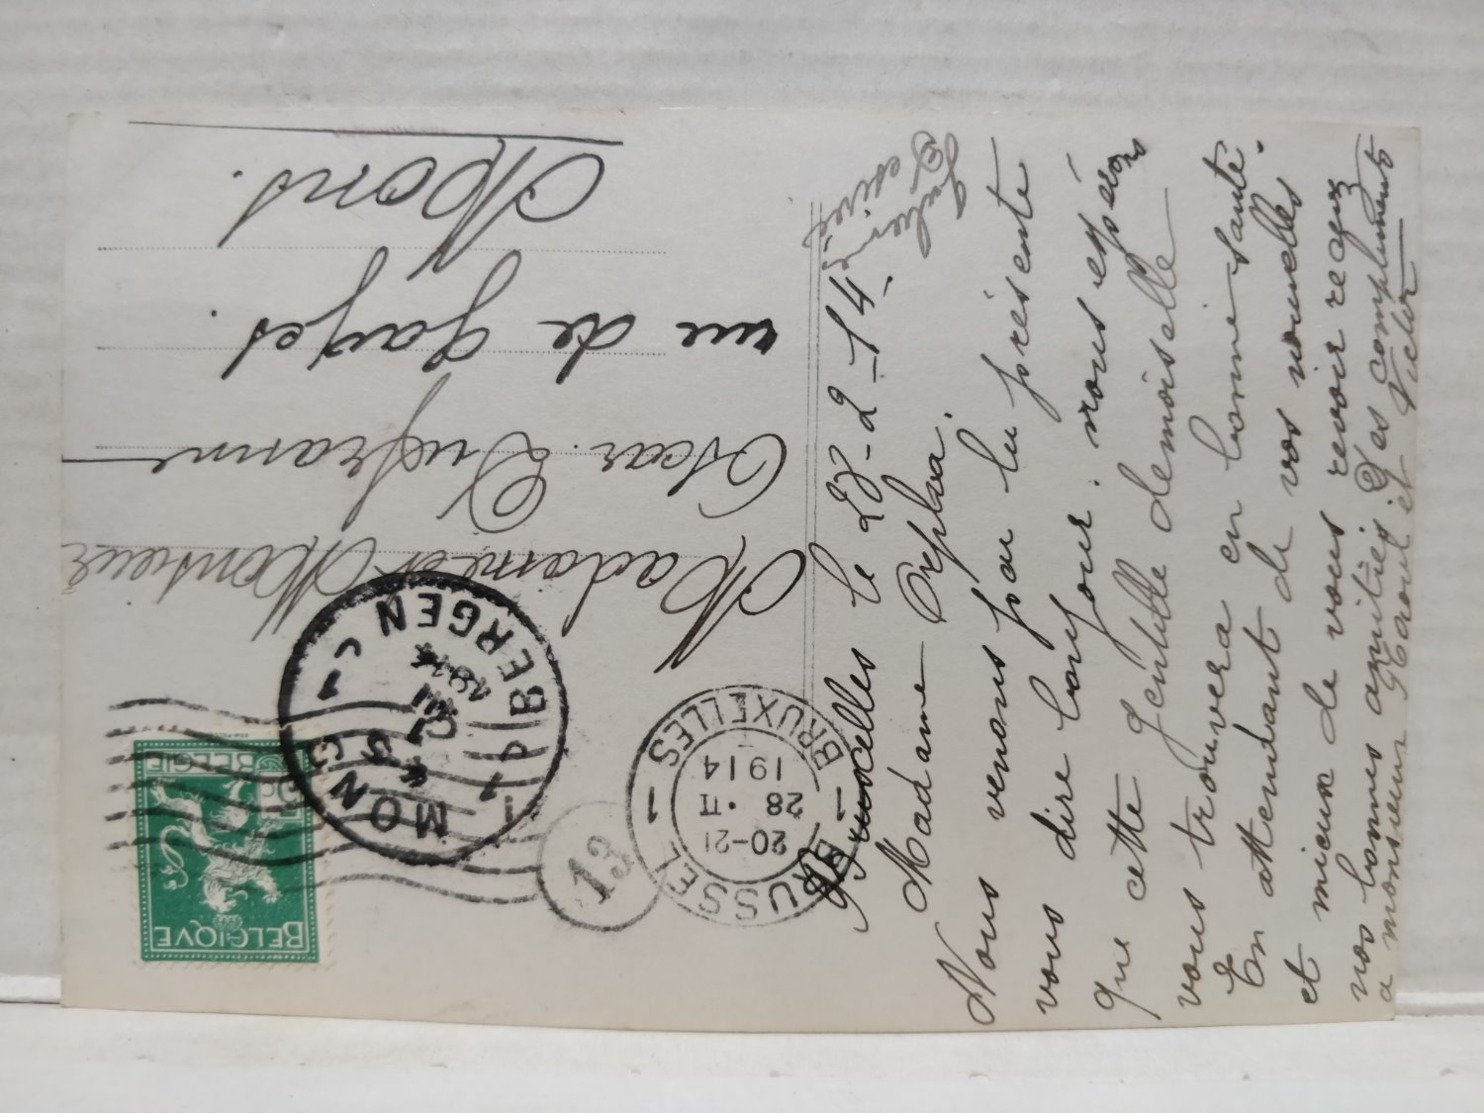 Bruxelles le 28-2-14.
Madame
Nous venons par la présente
vous dire bonjour. nous espérons
que cette gentille demoiselle
vous trouvera en bonne santé.
En attendant de vos nouvelles
et mieux de vous revoir recevez
nos bonnes amitiés Des compliments
a monsieur Raoul et Victor
Madame et Monsieur
Oscar Dufranne
rue de
Mons.
BRUSSEL 1
1 BRUXELLES
20-21
28·II
1914
MONS 1
1 BERGEN
1914
13
BELGIQUE
BELGIË